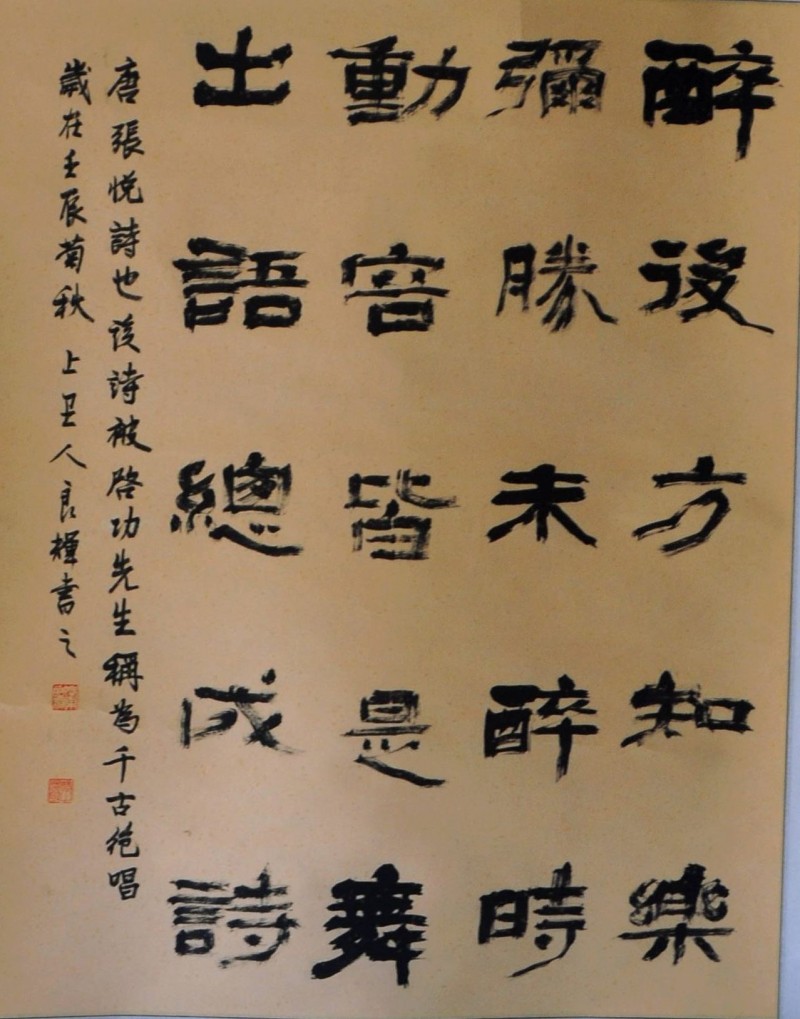 醉後方知樂
彌勝未醉時
動容皆是舞
出語總成詩
唐張悅詩也該詩被啓功先生稱為千古絶唱
歲在壬辰菊秋上丑人良輝書之